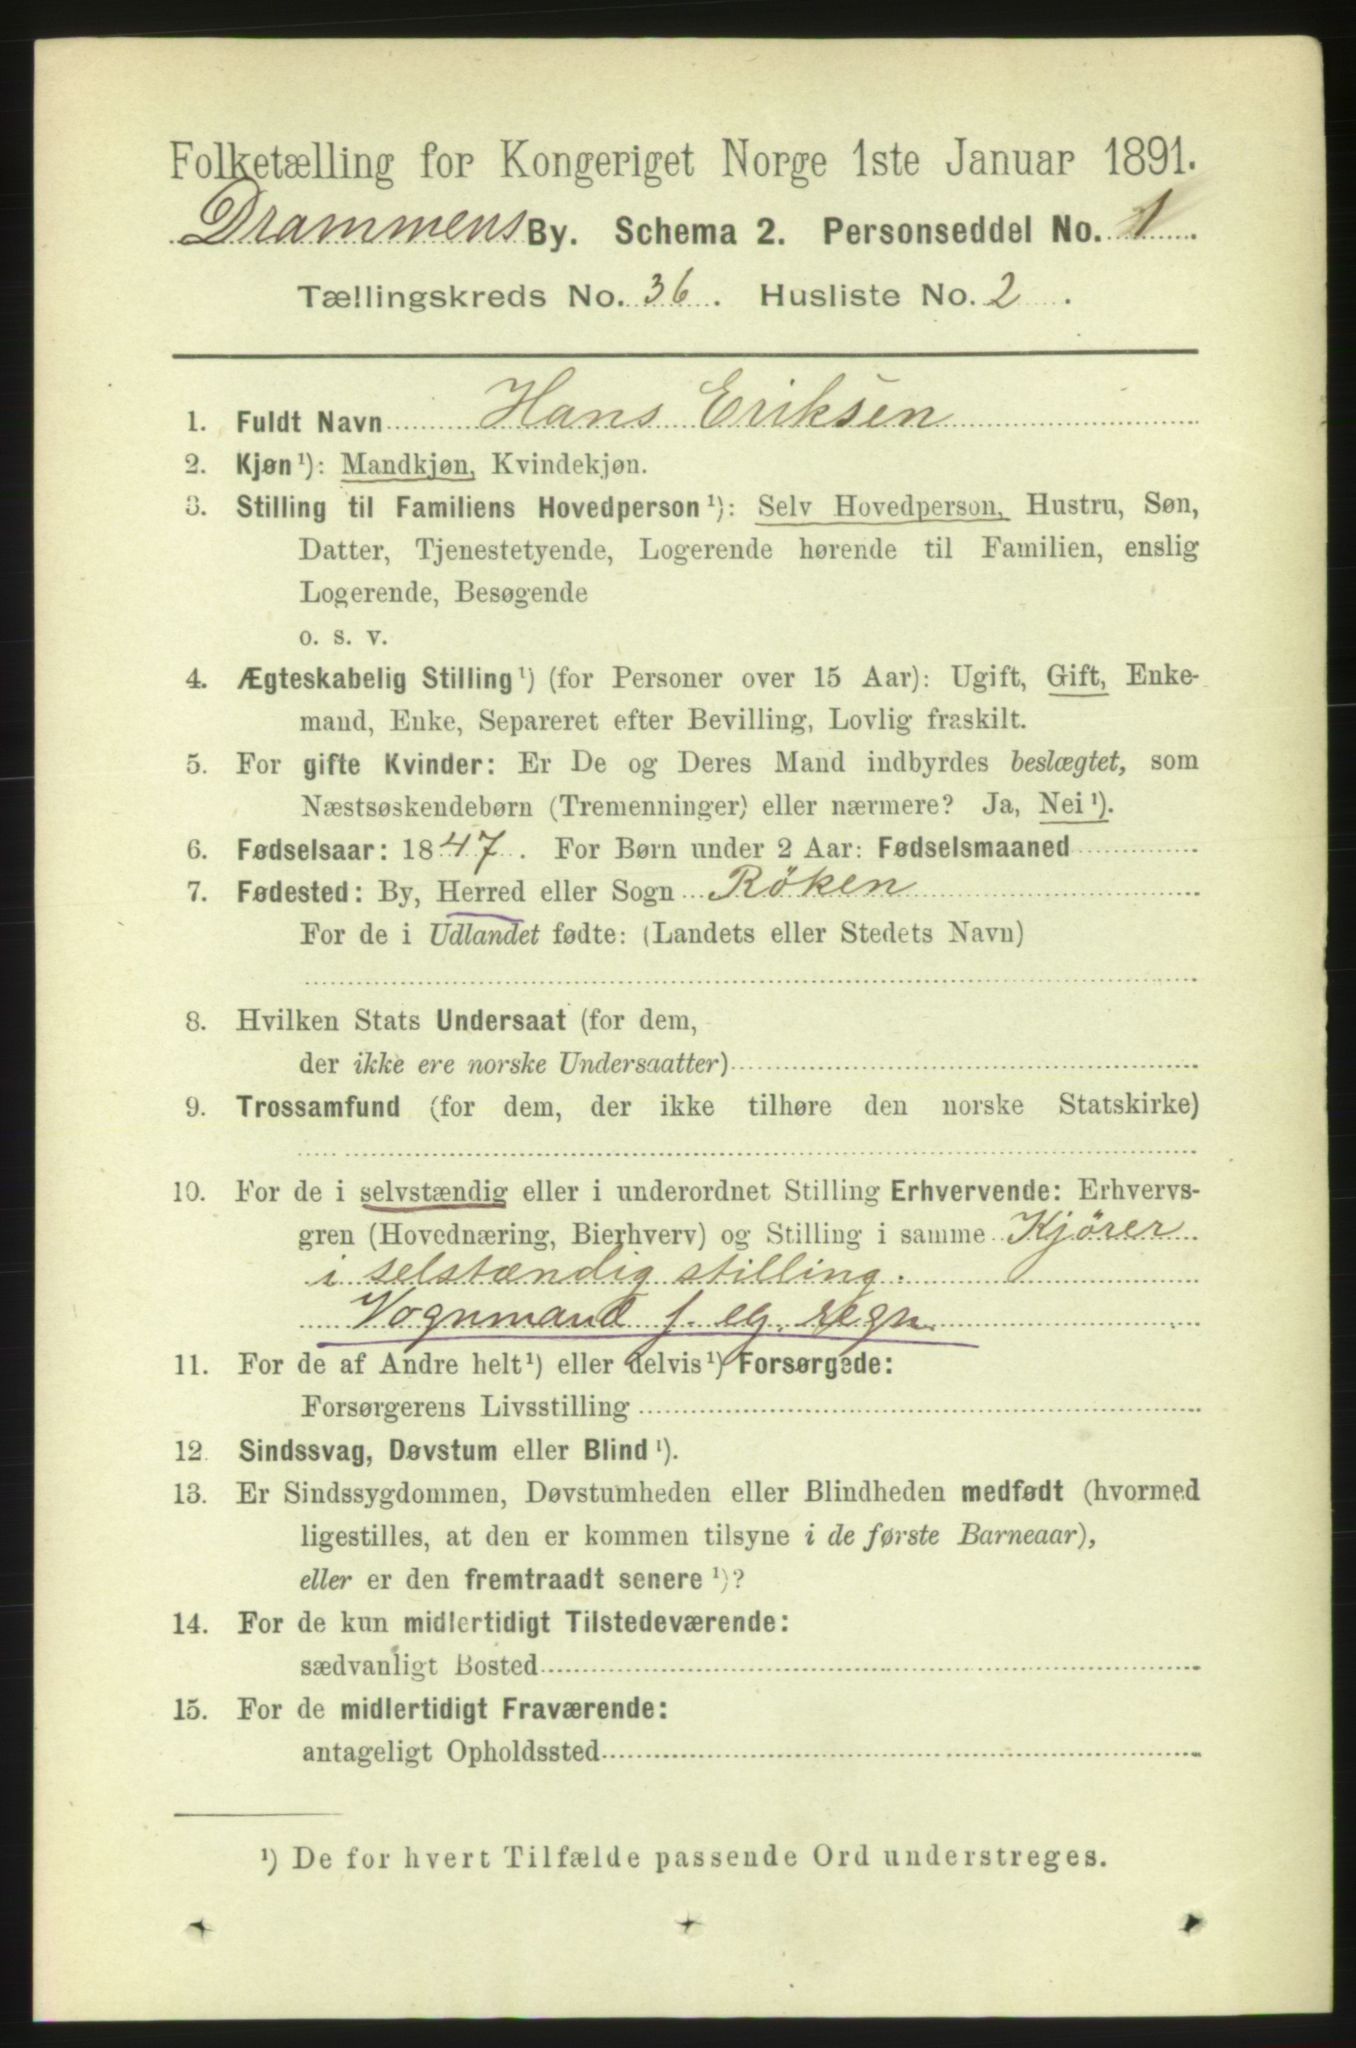 Folketælling for Kongeriget Norge 1ste Januar 1891.
Drammens By. Schema 2. Personseddel No. 1
Tællingskreds No. 36. Husliste No. 2.
1. Fuldt Navn Hans Eriksen
2. Kjøn¹): Mandkjøn, Kvindekjøn.
3. Stilling til Familiens Hovedperson¹): Selv Hovedperson, Hustru, Søn,
Datter, Tjenestetyende, Logerende hørende til Familien, enslig
Logerende, Besøgende
o. s. v.
4. Ægteskabelig Stilling¹) (for Personer over 15 Aar): Ugift, Gift, Enke-
mand, Enke, Separeret efter Bevilling, Lovlig fraskilt.
5. For gifte Kvinder: Er De og Deres Mand indbyrdes beslægtet, som
Næstsøskendebørn (Tremenninger) eller nærmere? Ja, Nei¹).
6. Fødselsaar: 1847. For Børn under 2 Aar: Fødselsmaaned
7. Fødested: By, Herred eller Sogn Röken
For de i Udlandet fødte: (Landets eller Stedets Navn)
8. Hvilken Stats Undersaat (for dem,
der ikke ere norske Undersaatter)
9. Trossamfund (for dem, der ikke tilhøre den norske Statskirke)
10. For de i selvstændig eller i underordnet Stilling Erhvervende: Erhvervs-
gren (Hovednæring, Bierhverv) og Stilling i samme Kjörer
i selstændig stilling.
Vognmand f. eg. regn.
11. For de af Andre helt¹) eller delvis¹) Forsørgede:
Forsørgerens Livsstilling
12. Sindssvag, Døvstum eller Blind¹).
13. Er Sindssygdommen, Døvstumheden eller Blindheden medfødt (hvormed
ligestilles, at den er kommen tilsyne i de første Barneaar),
eller er den fremtraadt senere¹)?
14. For de kun midlertidigt Tilstedeværende:
sædvanligt Bosted
15. For de midlertidigt Fraværende:
antageligt Opholdssted
¹) De for hvert Tilfælde passende Ord understreges.